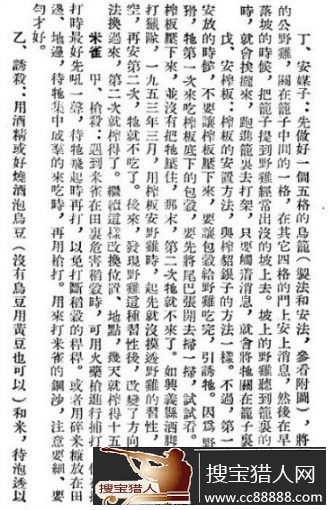 丁、安媒子：先做好一個五格的鳥籠（製法和安法，參看附圖），將
的公野雞，關在籠子中間的一格，在其它四格的門上安上消息，然後在早
落坡的時候，把籠子提到野雞經常出沒的坡上去。坡上的野雞聽到籠裏的
時，就會挨攏來，跑進籠裏去打架，只要觸着消息，就會將牠關在籠子裏
戊、安榨板：榨板的安置方法，與榨貂銀子的方法一樣。不過，第一
安放的時候，不要讓榨板壓下來，要讓包穀給野雞吃完，引誘牠。因爲野
猾，牠第一次來吃榨板底下的包穀，要先將尾巴張開去掃一掃，試試看。
榨板壓下來，並沒有把牠壓住，那末，第二次牠就不來了。如興義縣酒脚
打獵隊，一九五三年三月，用榨板安野雞時，起先就沒摸透野雞的習性，
空，再安第二次，牠就不吃了。後來，發現野雞這種習性後，改變了方向
法換過來，第二次就榨得了。繼續這樣改換位置、地點，幾天就榨得十五
朱雀
甲、槍殺：遇到米雀在田裏危害稻穀時，可用火藥槍進行捕打
打時最好先吼一聲，待牠飛起時再打，以免打斷稻穀的稈稈。或者用碎米糠放在田
邊、地邊，待牠集中成羣的來吃時，再用槍打。用來打米雀的鋼沙，注意要細、要
勻才好。
乙、誘殺：用酒精或好燒酒泡烏豆（沒有烏豆用黃豆也可以）和米，待泡透以
搜宝猎人网
www.cc88888.com